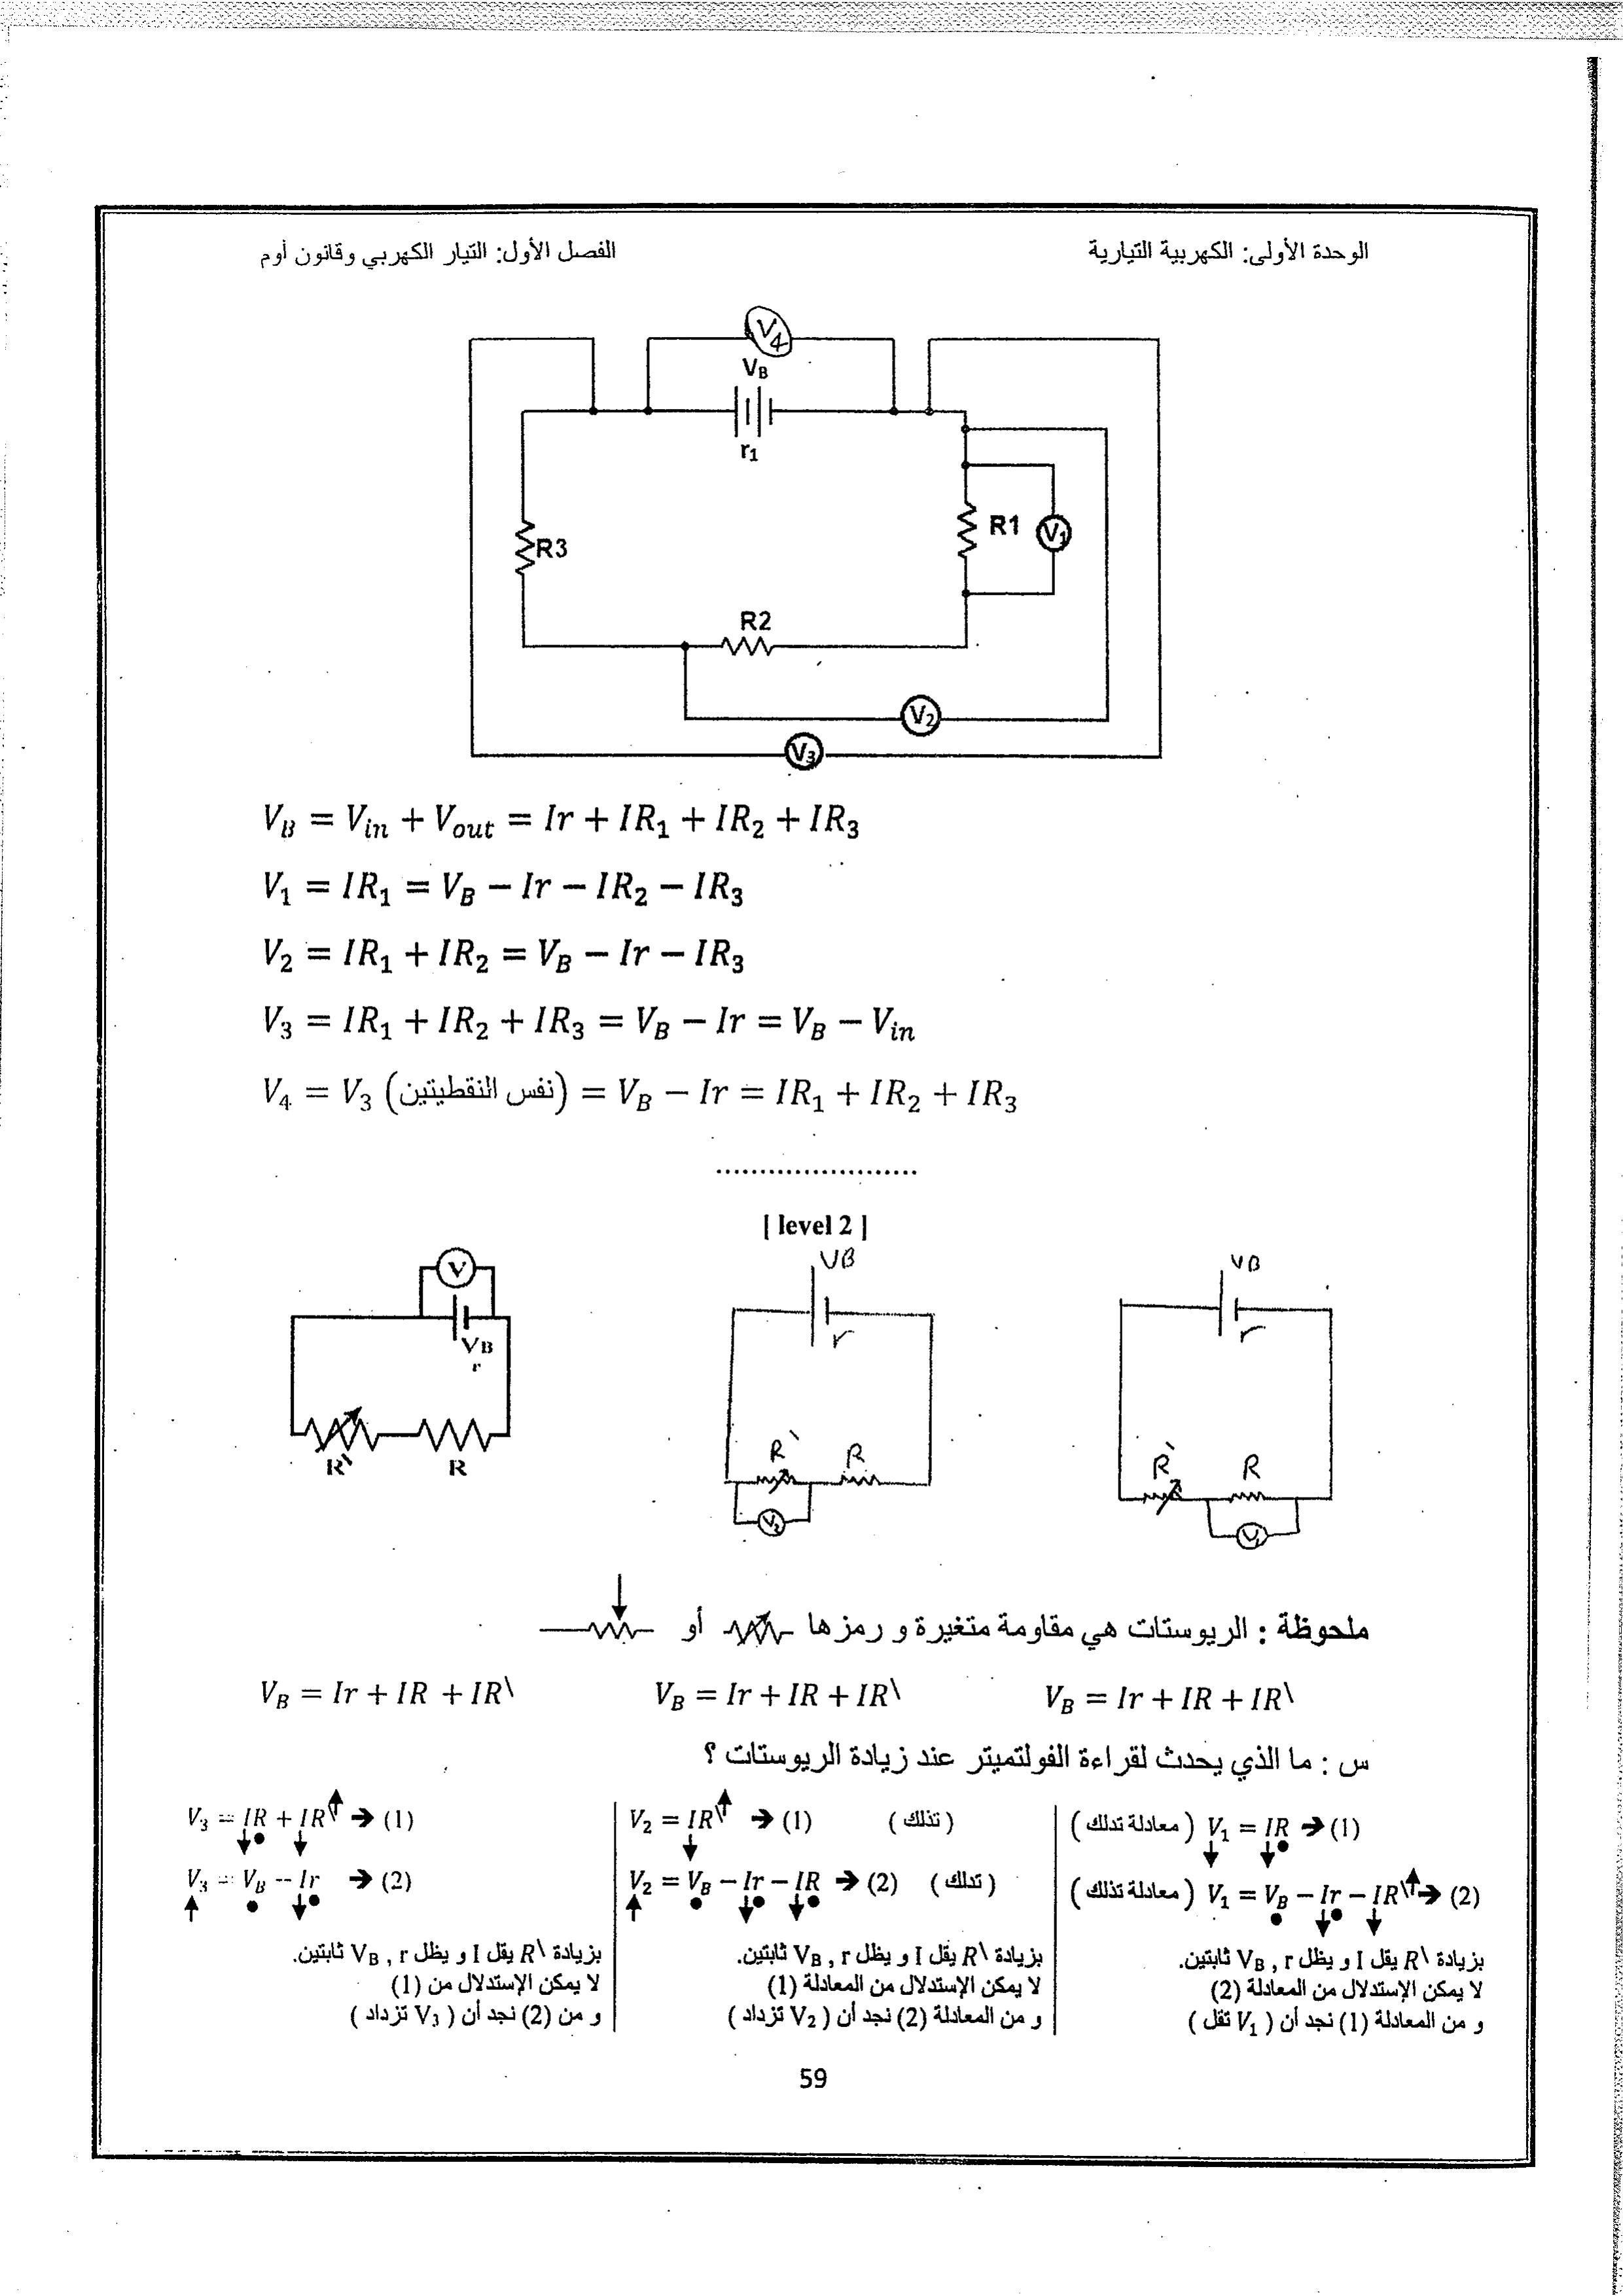 الوحدة الأولى: الكهربية التيارية
الفصل الأول: التيار الكهربي وقانون أوم
V4
VB
r1
R1
V1
R3
R2
V2
V3
V_B = V_in + V_out = Ir + IR_1 + IR_2 + IR_3
V_1 = IR_1 = V_B − Ir − IR_2 − IR_3
V_2 = IR_1 + IR_2 = V_B − Ir − IR_3
V_3 = IR_1 + IR_2 + IR_3 = V_B − Ir = V_B − V_in
V_4 = V_3 (نفس النقطيتين) = V_B − Ir = IR_1 + IR_2 + IR_3
.......................
[ level 2 ]
V
VB
r
R\
R
VB
r
R\
R
V2
VB
r
R\
R
V1
ملحوظة : الريوستات هي مقاومة متغيرة و رمزها أو
V_B = Ir + IR + IR\
V_B = Ir + IR + IR\
V_B = Ir + IR + IR\
س : ما الذي يحدث لقراءة الفولتميتر عند زيادة الريوستات ؟
( معادلة تدلك ) V_1 = IR ➔ (1)
( معادلة تذلك ) V_1 = V_B − Ir − IR\ ➔ (2)
بزيادة R\ يقل I و يظل VB , r ثابتين.
لا يمكن الإستدلال من المعادلة (2)
و من المعادلة (1) نجد أن ( V1 تقل )
V_2 = IR\ ➔ (1) ( تذلك )
V_2 = V_B − Ir − IR ➔ (2) ( تدلك )
بزيادة R\ يقل I و يظل VB , r ثابتين.
لا يمكن الإستدلال من المعادلة (1)
و من المعادلة (2) نجد أن ( V2 تزداد )
V_3 = IR + IR\ ➔ (1)
V_3 = V_B − Ir ➔ (2)
بزيادة R\ يقل I و يظل VB , r ثابتين.
لا يمكن الإستدلال من (1)
و من (2) نجد أن ( V3 تزداد )
59